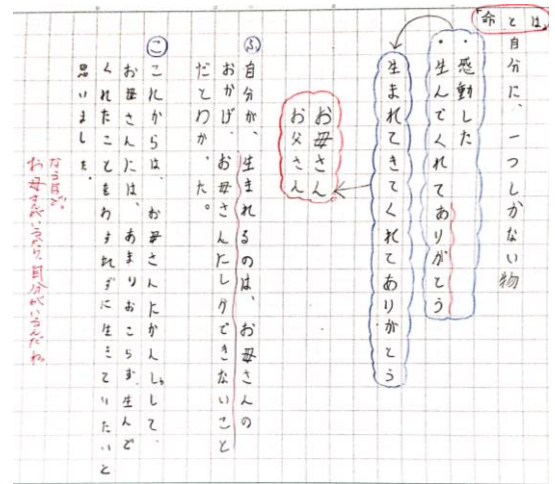 命とは
自分に、一つしかない物
・感動した
・生んでくれてありがとう
生まれてきてくれてありがとう
お母さん
お父さん
ふ 自分が、生まれるのは、お母さんの
おかげ、お母さんにしかできないこと
だとわかった。
こ これからは、お母さんにかんしゃして、
お母さんには、あまりおこらず、生んで
くれたことをわすれずに生きていたいと
思いました。
なるほど。
お母さんがいるから、自分がいるんだね。